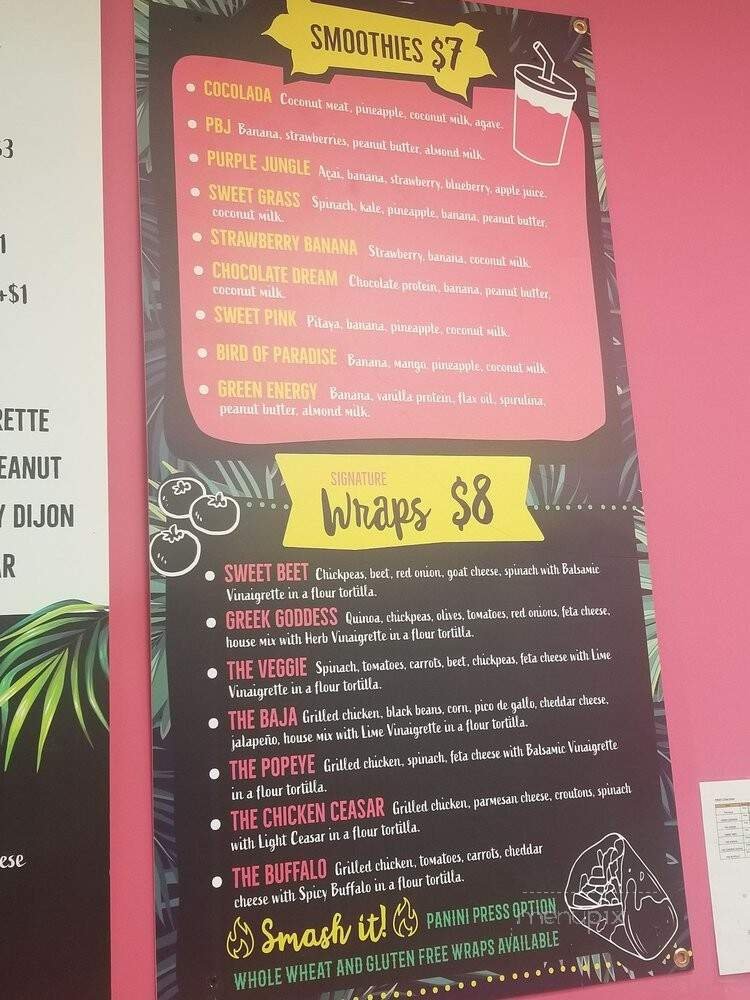 3
1
+$1
RETTE
EANUT
Y DIJON
AR
ese
SMOOTHIES $7
COCOLADA Coconut meat, pineapple, coconut milk, agave.
PBJ Banana, strawberries, peanut butter, almond milk.
PURPLE JUNGLE Açai, banana, strawberry, blueberry, apple juice.
SWEET GRASS Spinach, kale, pineapple, banana, peanut butter,
coconut milk.
STRAWBERRY BANANA Strawberry, banana, coconut milk.
CHOCOLATE DREAM Chocolate protein, banana, peanut butter,
coconut milk.
SWEET PINK Pitaya, banana, pineapple, coconut milk.
BIRD OF PARADISE Banana, mango, pineapple, coconut milk
GREEN ENERGY Banana, vanilla protein, flax oil, spirulina,
peanut butter, almond milk.
SIGNATURE
Wraps $8
SWEET BEET Chickpeas, beet, red onion, goat cheese, spinach with Balsamic
Vinaigrette in a flour tortilla.
GREEK GODDESS Quinoa, chickpeas, olives, tomatoes, red onions, feta cheese,
house mix with Herb Vinaigrette in a flour tortilla.
THE VEGGIE Spinach, tomatoes, carrots, beet, chickpeas, feta cheese with Lime
Vinaigrette in a flour tortilla.
THE BAJA Grilled chicken, black beans, corn, pico de gallo, cheddar cheese,
jalapeño, house mix with Lime Vinaigrette in a flour tortilla.
THE POPEYE Grilled chicken, spinach, feta cheese with Balsamic Vinaigrette
in a flour tortilla.
THE CHICKEN CEASAR Grilled chicken, parmesan cheese, croutons, spinach
with Light Ceasar in a flour tortilla.
THE BUFFALO Grilled chicken, tomatoes, carrots, cheddar
cheese with Spicy Buffalo in a flour tortilla.
Smash it! PANINI PRESS OPTION
WHOLE WHEAT AND GLUTEN FREE WRAPS AVAILABLE
menupix